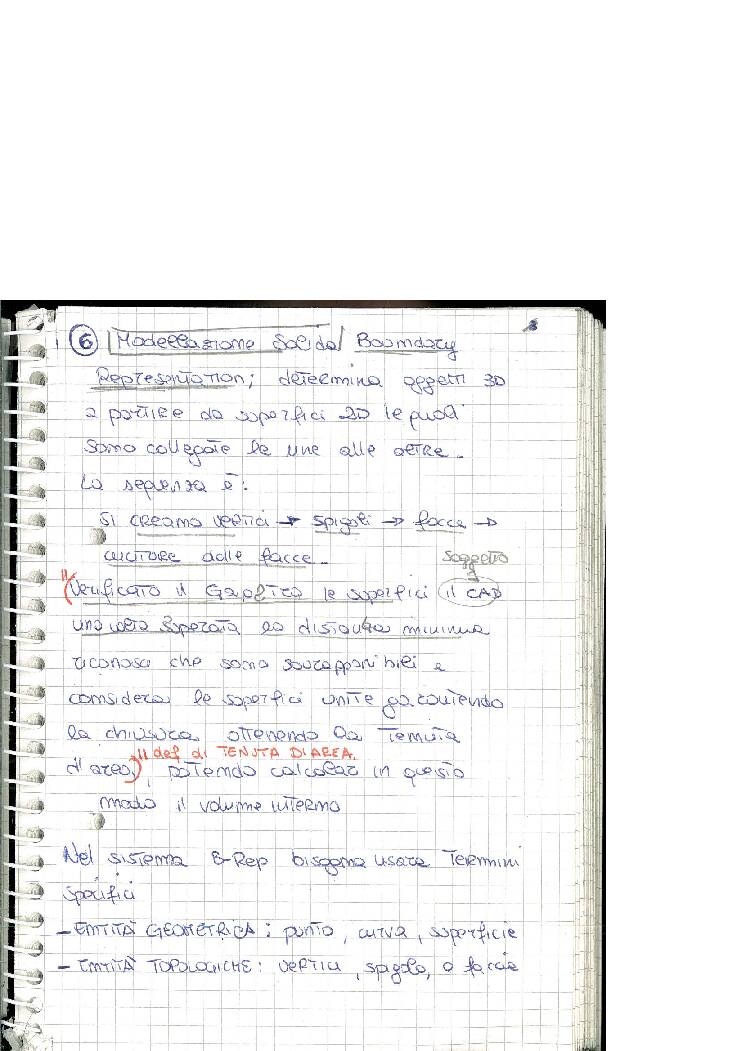 6 Modellazione Solida Boundary
Representation; determina oggetti 3D
a partire da superfici 2D le quali
sono collegate le une alle altre.
La sequenza è:
Si creano vertici → spigoli → facce →
cuciture delle facce.
Soggetto
Verificato il Gap tra le superfici il CAD
una volta superata la distanza minima
riconosce che sono sovrapponibili e
considera le superfici unite garantendo
la chiusura ottenendo la tenuta
" def di TENUTA DI AREA.
d'area), potendo calcolar in questo
modo il volume interno
Nel sistema B-Rep bisogna usare termini
specifici
- ENTITÀ GEOMETRICA: punto, curva, superficie
- ENTITÀ TOPOLOGICHE: vertici, spigolo, o faccie